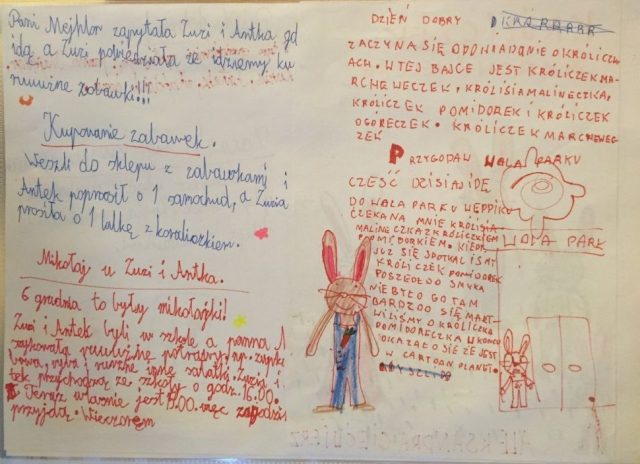 Pani Mejhlor zapytała Zuzi i Antka gd
idą a Zuzi powiedziała że idziemy ku
zabawki!!!
Kupowanie zabawek.
Weszli do sklepu z zabawkami i
Antek poprosił o 1 samochud, a Zuzia
prosiła o 1 lalkę z koralikiem.
Mikołaj u Zuzi i Antka.
6 grudnia to były mikołajki!
Zuzi i Antek byli w szkole a panna
potrawy np. zupki
ryba i ruużne inne sałatki. Zuzia i
tek przychodzą ze szkoły o godz. 16.00.
Teraz własnie jest 17.00. więc za godzi
przyjdą. Wieczorem
DZIEŃ DOBRY
ZACZYNA SIĘ OPOWIADANIE O KRÓLICZK
ACH. W TEJ BAJCE JEST KRÓLICZEK MA-
RCHEWECZEK, KRÓLISIA MALINECZKA,
KRÓLICZEK POMIDOREK I KRÓLICZEK
OGÓRECZEK. KRÓLICZEK MARCHEWEC
ZEK
PRZYGODA W WOLA PARKU
CZEŚĆ DZISIAJ IDĘ
DO WOLA PARKU
CZEKA NA MNIE KRÓLISIA
MALINECZKA Z KRÓLICZKIEM
POMIDORKIEM. KIEDY
JUŻ SIĘ SPOTKALIŚMY
KRÓLICZEK POMIDOREK
POSZEDŁ DO SMYKA
NIE BYŁO GO TAM
BARDZO SIĘ MART-
WILIŚMY O KRÓLICZKA
POMIDORECZKA W KOŃCU
OKAZAŁO SIĘ ŻE JEST
W CARTOON PLANET.
WOLA PARK